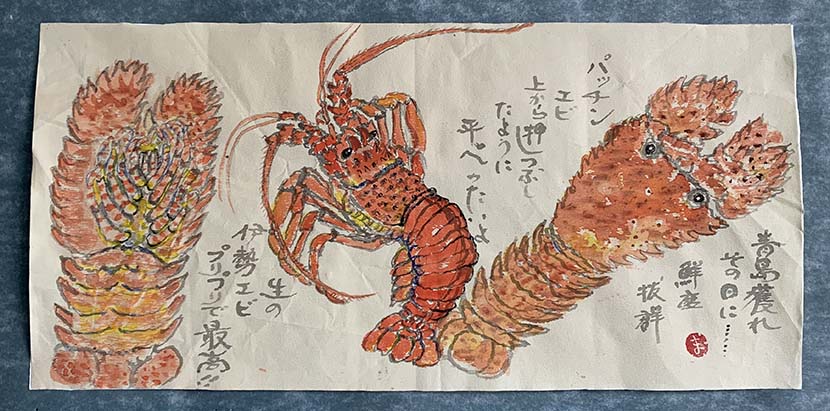 パッチン
エビ
上から押しつぶし
たように
平ぺったいよ
青島獲れ
その日に……
鮮度
抜群
生の
伊勢エビ
プリプリで最高!!